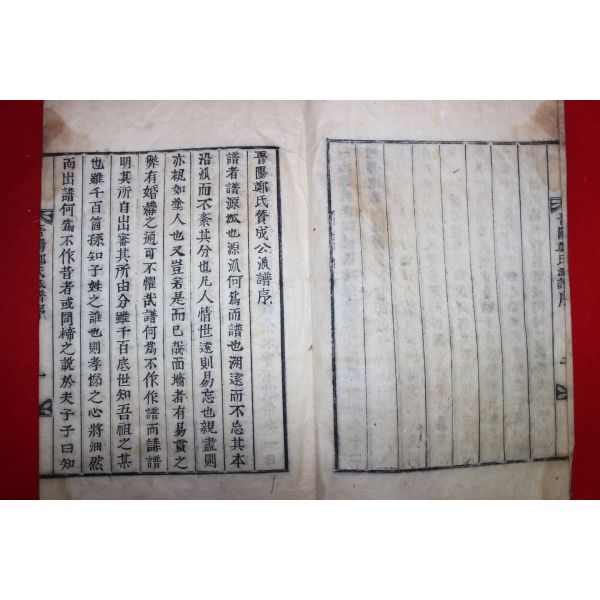 晉陽鄭氏派譜序
晉陽鄭氏贊成公派譜序
譜者譜源派也源派何爲而譜也溯遠而不忘其本
沿派而不紊其分也凡人情世遠則易忘也親盡則
亦視如塗人也又豈若是而已哉面墻者有易貫之
弊有婚之通可不懼哉譜何爲不作作譜而講譜
明其所自出審其所由分雖千百底世知吾祖之某
也雖千百箇孫知子姓之誰也則孝悌之心將油然
而出譜何爲不作昔者或問禘之說於夫子子曰知
晉陽鄭氏派譜序 一